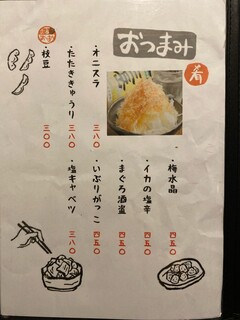 おつまみ
肴
・オニスラ 三八〇
・たたききゅうり 三八〇
・枝豆 三〇〇
・梅水晶 四五〇
・イカの塩辛 四五〇
・まぐろ酒盗 四五〇
・いぶりがっこ 四五〇
・塩キャベツ 三八〇